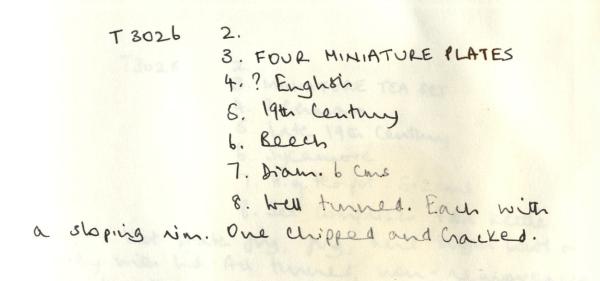 T 3026 2.
3. FOUR MINIATURE PLATES
4. ? English
5. 19th Century
6. Beech
7. Diam. 6 cms
8. Well turned. Each with
a sloping rim. One chipped and cracked.